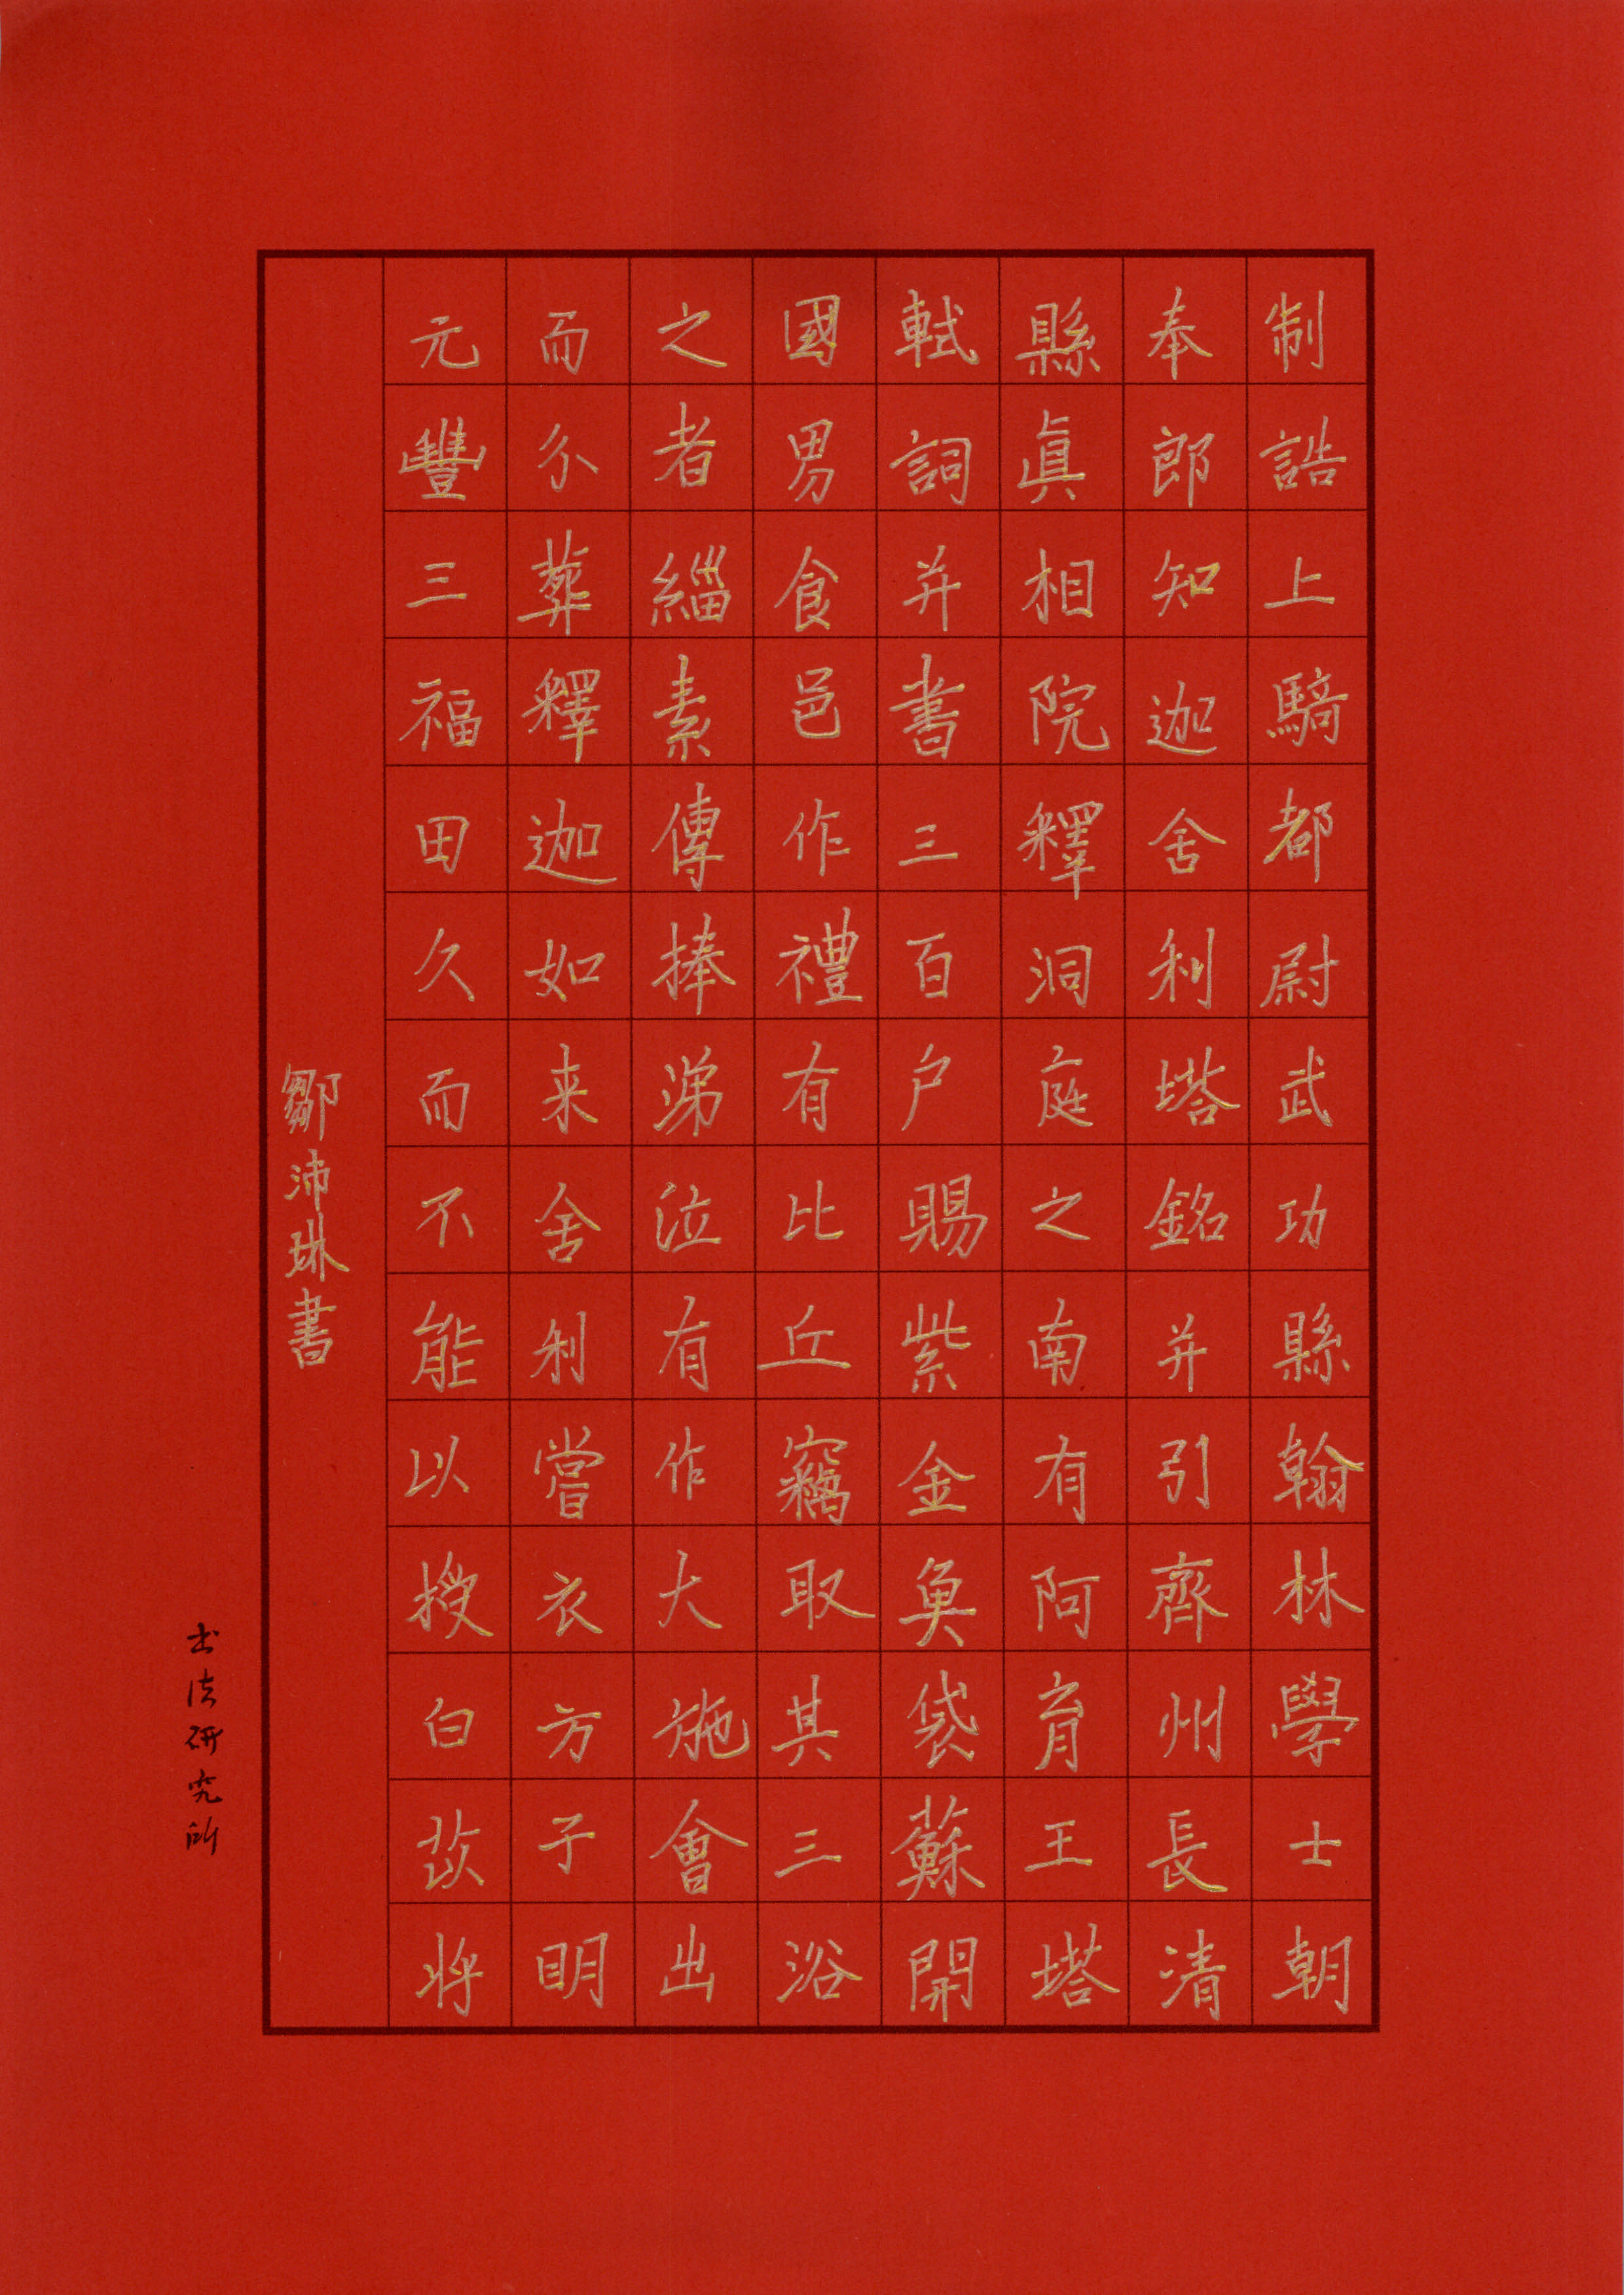 制誥上騎都尉武功縣翰林學士朝
奉郎知迦舍利塔銘并引齊州長清
縣眞相院釋洞庭之南有阿育王塔
軾詞并書三百户賜紫金魚袋蘇開
國男食邑作禮有比丘竊取其三浴
之者緇素傳捧涕泣有作大施會出
而尒葬釋迦如来舍利嘗衣方子明
元豐三福田久而不能以授白苡将
鄒沛琳書
书法研究所